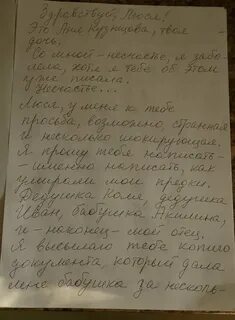 Здравствуй, Люся!
Это Аня Кузнецова, твоя
дочь.
Со мной - несчастье, я забо-
лела, хотя я тебе об этом
уже писала.
Несчастье...
Люся, у меня к тебе
просьба, возможно, странная
и несколько шокирующая.
Я прошу тебя написать -
- именно написать, как
умирали мои предки.
Дедушка Коля, дедушка
Иван, бабушка Акилина,
и - наконец - мой отец.
Я высылаю тебе копию
документа, который дала
мне бабушка за несколь-